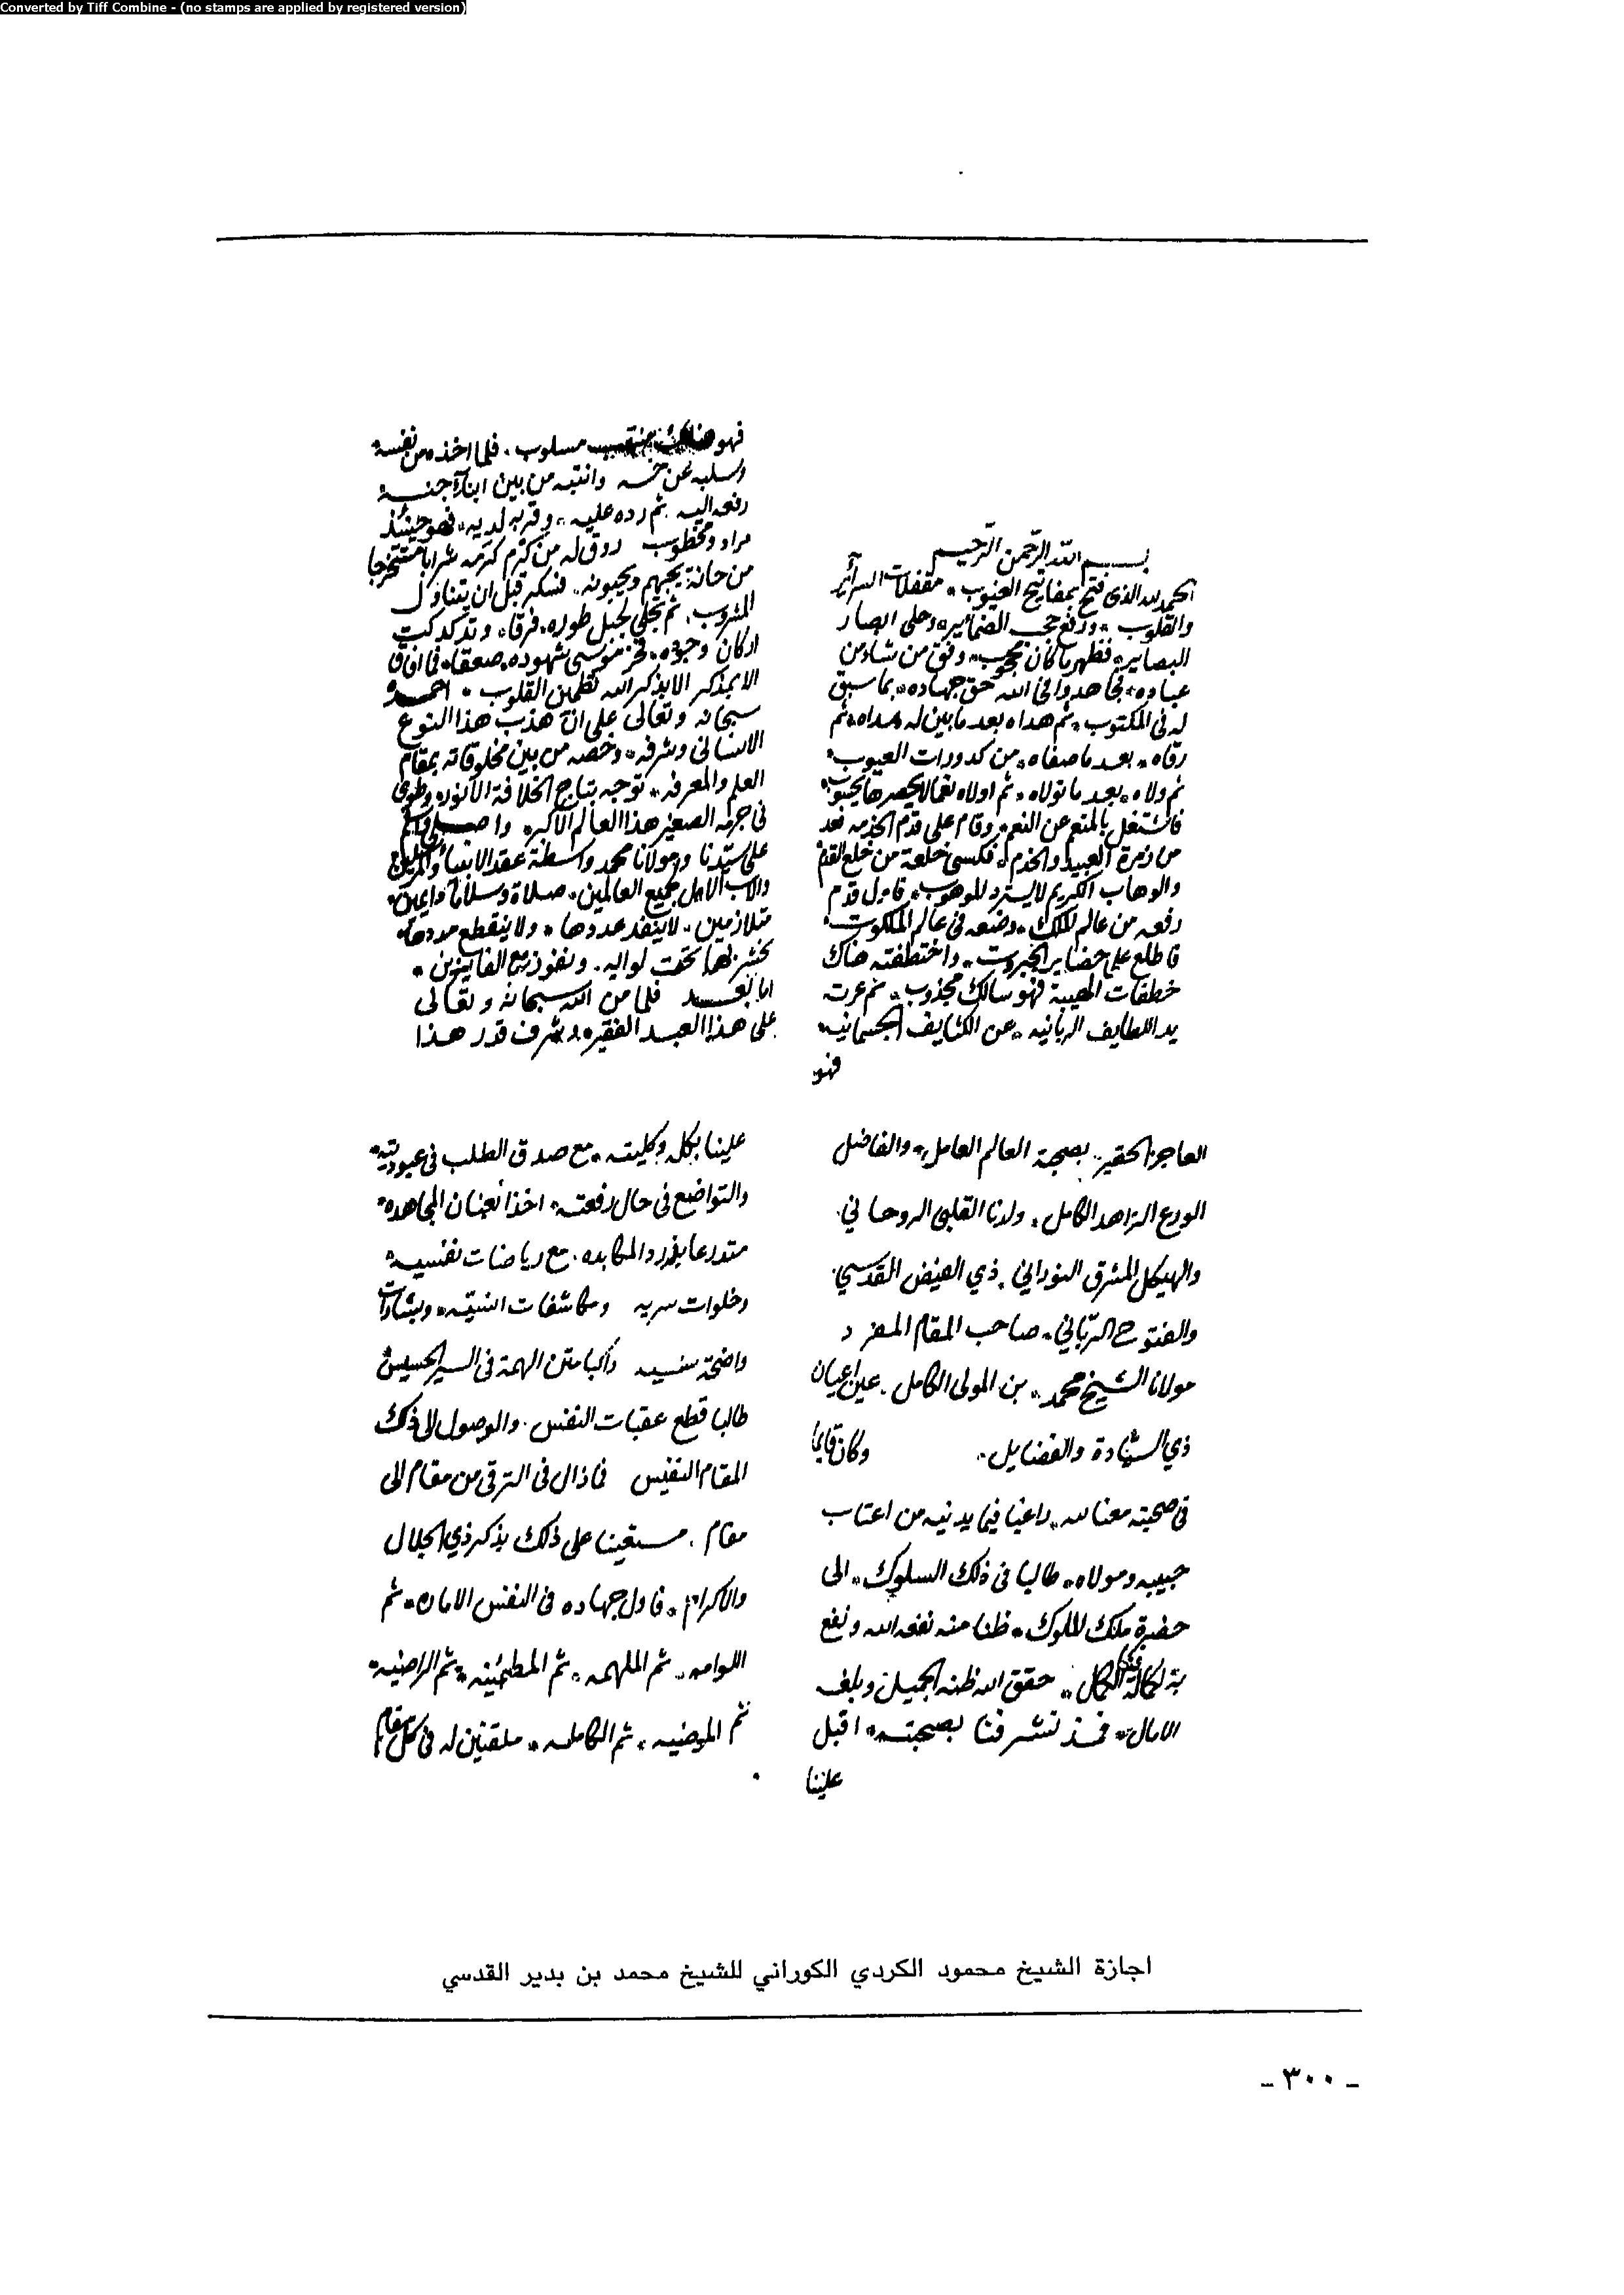 Converted by Tiff Combine - (no stamps are applied by registered version)
بسم الله الرحمن الرحيم
الحمد لله الذي فتح بمفاتيح الغيوب مقفلات السرآئر
والقلوب ورفع حجب الضمائر وجلى ابصار
البصاير فظهر ما كان محجوب وفق من شاء من
عباده فجاهدوا في الله حق جهاده بما سبق
له في المكتوب ثم هداه بعد ما بين له هداه ثم
رقاه بعد ما صفاه من كدورات العيوب
ثم ولاه بعد ما تولاه ثم اولاه نعما لا يحصرها
فاشتغل بالمنعم عن النعم وقام على قدم الخدمه فعد
من زمرة العبيد والخدم فكسى خلعة من خلع القدم
والوهاب الكريم لا يسترد الموهوب فاول قدم
رفعه من عالم الملك وضعه في عالم الملكوت
فاطلع على حضاير الجبروت واختطفته هناك
خطفات الهيبة فهو سالك مجذوب ثم عرت
يد اللطايف الربانيه عن الكثايف الجسمانيه
فهو
فهو هنالك مسلوب فلما اخذه من نفسه
وسلبه عن حسه وانتبه من بين ابنآء جنسه
رفعه اليه ثم رده عليه وقربه لديه فهو حينئذ
مراد ومخطوب روق له من كرم كرمه شرابا مستخرجا
من حانة يحبهم ويحبونه فسكر قبل ان يتناول
المشروب ثم تجلى لجبل طوره فرقا وتدكدكت
اركان وجوده فخر موسى شهوده صعقا في افاق
الا بذكر الله تطمئن القلوب احمده
سبحانه وتعالى على ان هذب هذا النوع
الانساني وشرفه وخصه من بين مخلوقاته بمقام
العلم والمعرفه توجه بتاج الخلافة الانور وطوى
في جرمه الصغير هذا العالم الاكبر واصلي واسلم
على سيدنا ومولانا محمد واسطة عقد الانبيا والمرسلين
والاب الاول لجميع العالمين صلاة وسلاما دايمين
متلازمين لا ينفد عددها ولا ينقطع مددها
نحشر بها تحت لوايه ونفوز مع الفايزين
اما بعد فلما من الله سبحانه وتعالى
على هذا العبد الفقير وشرف قدر هذا
العاجز الحقير بصحبة العالم العامل والفاضل
الورع الزاهد الكامل ولدنا القلبي الروحاني
والهيكل المشرق النوراني ذي الفيض القدسي
والفتوح الرباني صاحب المقام المفرد
مولانا الشيخ محمد بن المولى الكامل عين اعيان
ذي السيادة والفضايل وكان قايما
في صحبته معنا لله راغبا فيما يدنيه من اعتاب
حبيبه ومولاه طالبا في ذلك السلوك الى
حضرة ملك الملوك ظنا منه نفعه الله ونفع
به حقق الله ظنه الجميل وبلغه
الامال فمذ تشرفنا بصحبته اقبل
علينا
علينا بكله وكليته مع صدق الطلب في عبوديته
والتواضع في حال رفعته اخذا بعنان المجاهده
متدرعا بدرد المكابده مع رياضات نفسيه
وخلوات سريه ومكاشفات انسيه وبشارات
واضحة سنيه راكبا متن الهمة في السير الحسيس
طالبا قطع عقبات النفس والوصول الى ذلك
المقام النفيس فما زال في الترقي من مقام الى
مقام مستعينا على ذلك بذكر ذي الجلال
والاكرام فاول جهاده في النفس الاماره ثم
اللوامه ثم الملهمه ثم المطمئنه ثم الراضيه
ثم المرضيه ثم الكامله ملقنين له في كل مقام
اجازة الشيخ محمود الكردي الكوراني للشيخ محمد بن بدير القدسي
- ٣٠٠ -